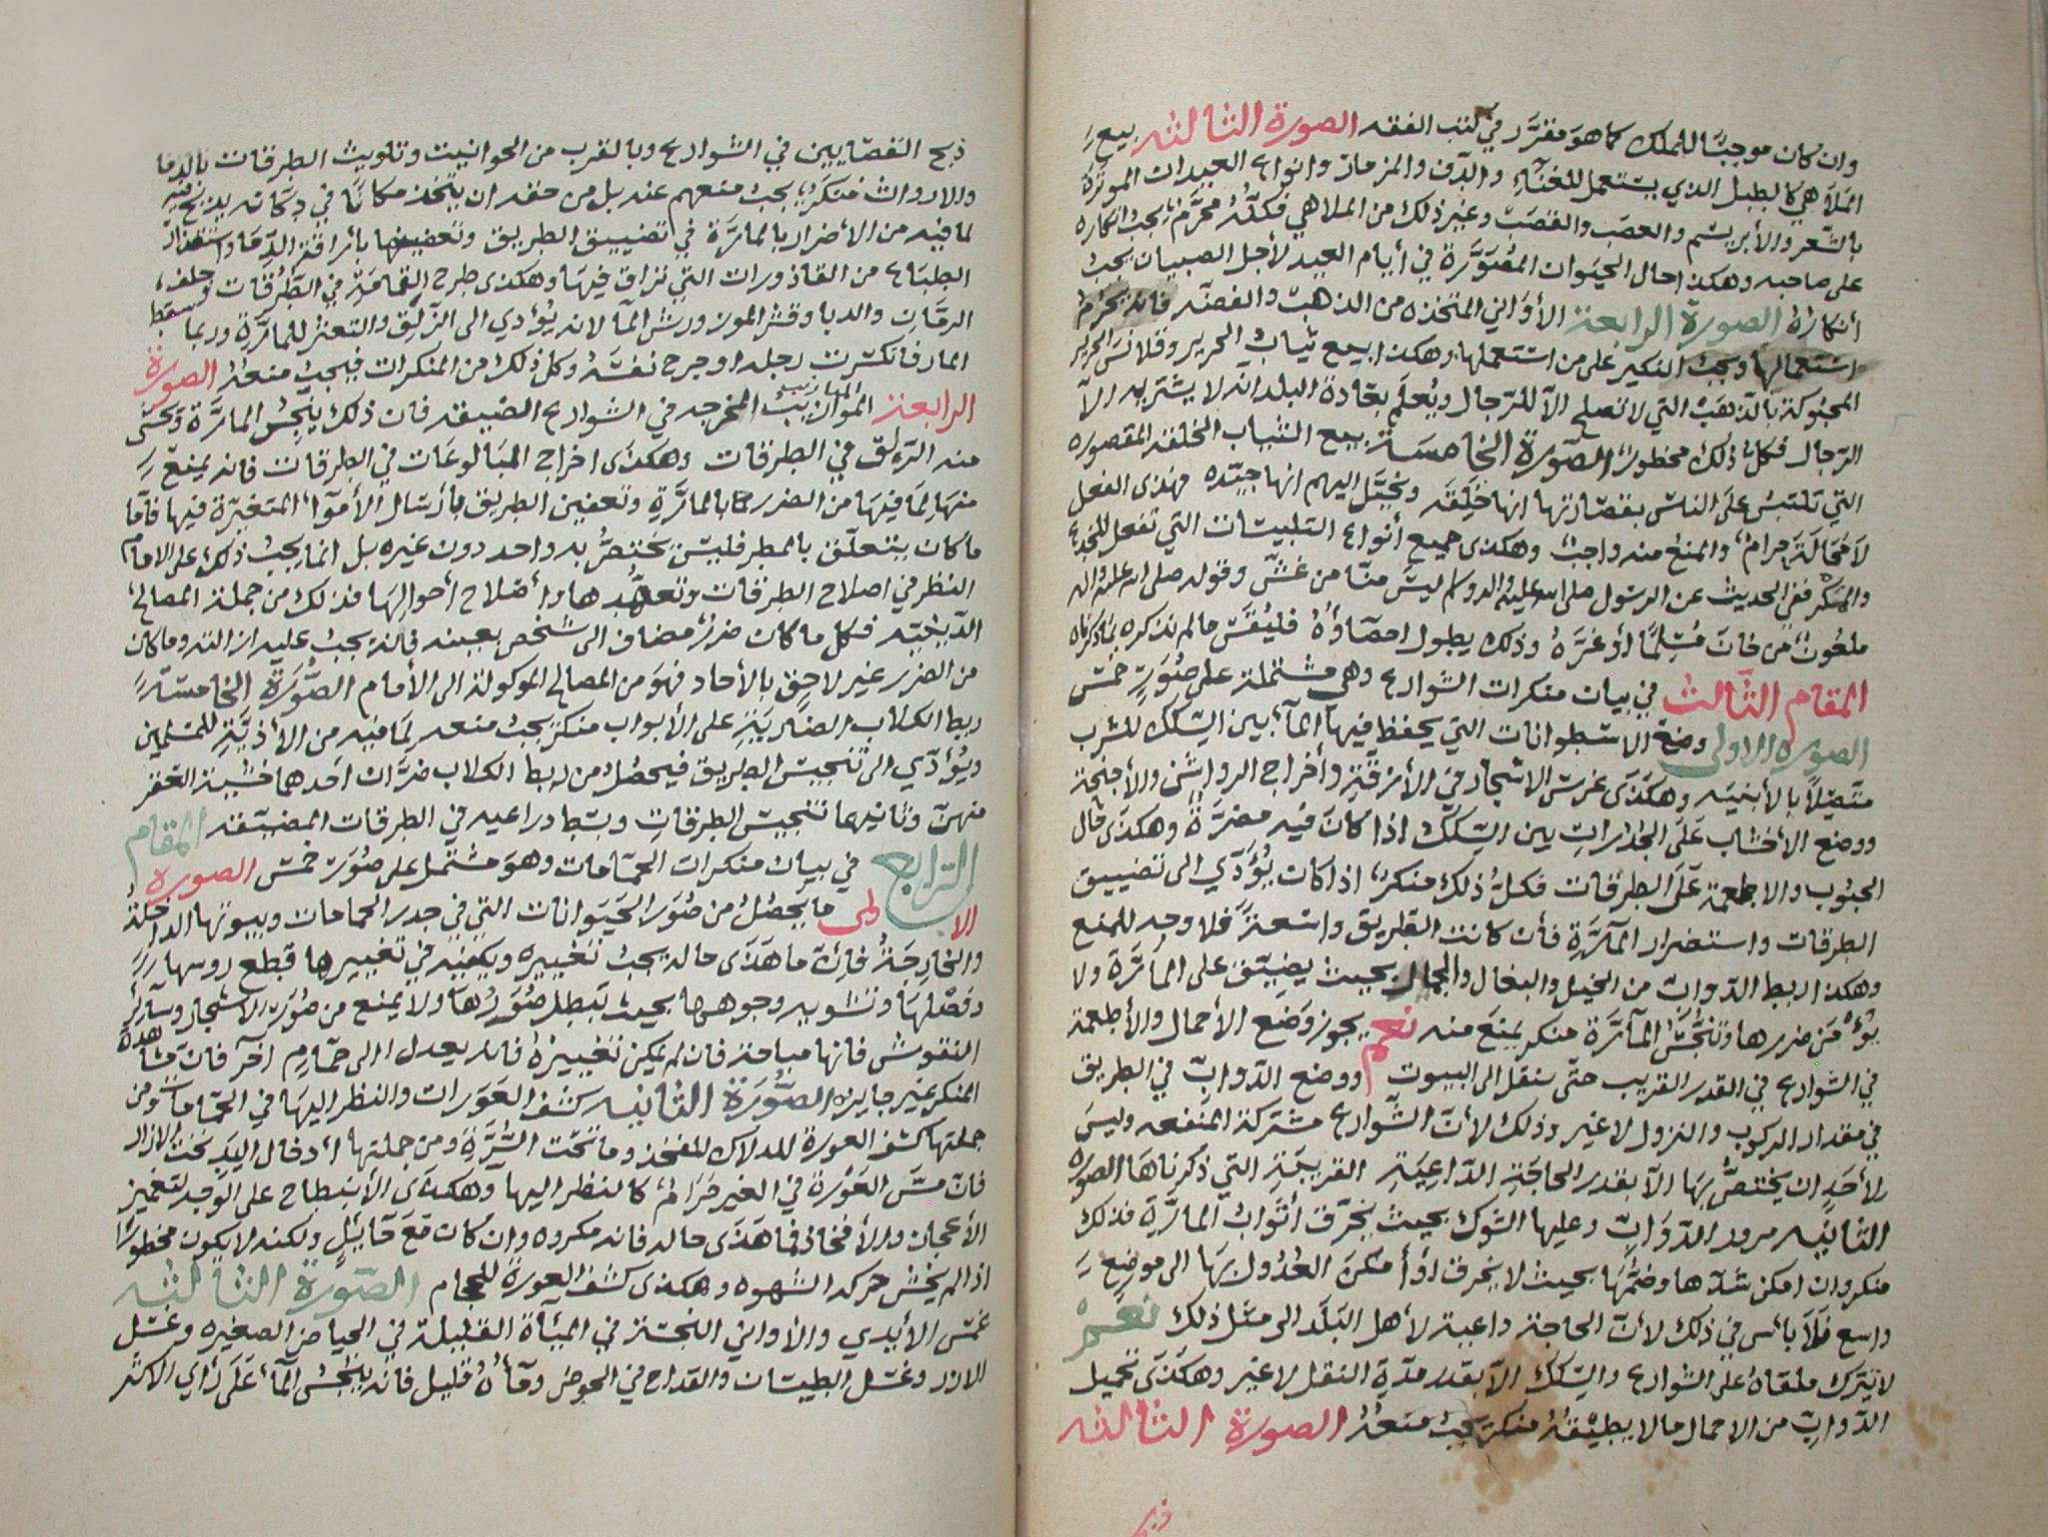 وان كان موجبًا للملك كما هو مقرَّر في كتب الفقه الصورة الثالثه بيع
الملاهي كالطبل الذي يستعمل للغنآء والدف والمزمار وانواع العيدان الموترة
بالشعر والأبريشم والعصب والقصب وغير ذلك من الملاهي فكله محرّم يجب انكاره
على صاحبه وهكذا حال الحيوان المصورة في أيام العيد لأجل الصبيان يجب
أنكاره الصورة الرابعة الأواني المتخذه من الذهب والفضه فانه يحرم
استعمالها ويجب النكير على من استعملها وهكذا بيع ثياب الحرير وقلانس الحرير
المحبوكة بالذهب التي لا تصلح الآ للرجال ويُعلم بعادة البلد انه لا يشتريه الآ
الرجال فكل ذلك محظور الصورة الخامسة بيع الثياب الخلقة المقصوره
التي تلتبس على الناس بقصارتها انها خلقه ويخيّل اليهم انها جيّده فهذى الفعل
لا محالة حرام والمنع منه واجب وهكذى جميع أنواع التلبيسات التي تفعل للخدع
والمكر ففي الحديث عن الرسول صلى الله عليه واله وسلم ليس منّا من غشّ وقوله صلى الله عليه واله
ملعون من خان مسلمًا أو غرّه وذلك يطول احصاؤه فليُقس ما لم نذكره بما ذكرناه
المقام الثالث في بيان منكرات الشوارع وهي مشتملة على صُوَرٍ خمس
الصوره الاولى وضع الاسطوانات التي يحفظ فيها المآء بين السكك للشرب
متصلاً بالأبنيه وهكذى غرس الاشجار في الأزقّةِ وأخراج الرواشن والأجنحة
ووضع الأخشاب على الجدارات بين السكك اذا كان فيه مضرَّة وهكذى حال
الحبوب والاطعمة على الطرقات فكلُّ ذلك منكر اذا كان يُؤدّي الى تضييق
الطرقات واستضرار المآرّةِ فأن كانت الطريق واسعةً فلا وجه للمنع
وهكذا ربط الدوابّ من الخيل والبغال والجمال بحيث يضيق على المآرّة ولا
يؤمَن ضررها وتنجّس المآرّة منكر يمنع منه نعم يجوز وضع الأحمال والأطعمة
في الشوارع في القدر القريب حتى ينقل الى البيوت ووضع الدوابّ في الطريق
في مقدار الركوب والنزول لا غير وذلك لأن الشوارع مشتركة المنفعه وليس
لأحدٍ ان يختصُّ بها الآ بقدر الحاجةِ الداعيةِ القريبةِ التي ذكرناها الصوره
الثانيه مرور الدوابّ وعليها الشوك بحيث يخرق أثواب المارّة فذلك
منكر وان امكن شدّها وضمّها بحيث لا يخرق او أمكن العُدُول بها الى موضع
واسع فلا بأس في ذلك لأن الحاجة داعية لأهل البلد الى مثل ذلك نعم
لا يترك ملقاة على الشوارع والسكك الآ بقدر مدّةِ النقل لا غير وهكذى تحميل
الدوابّ من الاحمال ما لا يطيقه منكر يجب منعهُ الصورة الثالثه
ذبح
ذبح القصّابين في الشوارع وبالقرب من الحوانيت وتلويث الطرقات بالدما
والارواث منكر يجب منعهم عنه بل من حقه ان يتخذ مكانًا في دكانه يذبح فيه
لما فيه من الأضرار بالمارَّة في تضييق الطريق وتعفينها بأراقة الدما واستقذار
الطباع من القاذورات التي تراق فيها وهكذى طرح القمامَةِ في الطُرُقات
الرمّان والدبا وقشر الموز ورش المآ لانه يُؤدي الى الزلق والتعثر للمارّة وربما سقط
المار فانكسرت رجله او جرح نفسَهُ وكل ذلك من المنكرات فيجب منعهُ الصورة
الرابعة الموازيب المخرجه في الشوارع الضيقه فان ذلك ينجّس المارَّة ويخشى
منه الزلق في الطرقات وهكذى اخراج البالوعات في الطرقات فانه يمنع
منها لما فيها من الضرر بالمارَّةِ وتعفين الطريق بأرسال الأموآء المتغيّرة فيها فامّا
ما كان يتعلق بالمطر فليس يختصُّ به واحد دون غيره بل انما يجب ذلك على الامام
النظر في اصلاح الطرقات وتعهّدها وأصلاح أحوالها فذلك من جملة المصالح
الدينيّه فكل ما كان ضرره مضاف الى شخص بعينه فانه يجب عليه ازالته وما كان
من الضرر غير لاحق بالأحاد فهو من المصالح الموكولة الى الأمام الصُّورَة الخامسَة
ربط الكلاب الضاريَةِ على الأبواب منكر يجب منعه لما فيه من الأذيّةِ للمسلمين
ويُؤدّي الى تنجيس الطريق فيحصل من ربط الكلاب ضرران احدهما خشية العقر
منهن وثانيهما تنجيس الطرقات وبسط دراعيه في الطرقات المضيّقه المقام
الرابع في بيان منكرات الحمّامات وهو مشتمل على صُوَر خمس الصورة
الاولى ما يحصل من صُوَر الحيَوانات التي في جدر الحمامات وبيوتها الداخلة
والخارجَةُ فإن ما هَذَى حاله يجب تغييره ويكفيه في تغييرها قطع روسها
وفصلها وتشويه وجوهها بحيث تبطل صُوَرُها ولا يمنع من صُوَر الاشجار وسآئر
النقوش فانها مباحة فان لم يمكن تغييرهُ فانه يعدل الى حمّامٍ آخر فان مشاهدة
المنكر غير جايزه الصُّورَة الثانيه كشف العَوَرات والنظر اليهَا في الحمّامات ومن
جملتها كشف العورة للدلاك للفخذ وما تحت السُّرَّةِ ومن جملتها أدخال اليد تحت الازار
فان مسّ العَوْرة في الغير حَرَام كالنظر اليها وهكذى الأنبطاح على الوجه لتغميز
الأعجاز والأفخاذ فما هذى حاله فانه مكروه وان كان مَعَ حَآئِلٍ ولكنه لا يكون محظورًا
اذا لم يخش حركه الشهوه وهكذى كشف العورة للحجام الصّورة الثالثه
غمس الأيدي والأواني النجسة في الميآة القليلة في الحياض الصغيره وغسل
الازر وغسل الطيسان والقداح في الحوض ومآؤهُ قليل فانه ينجس المآء على رأي الاكثر